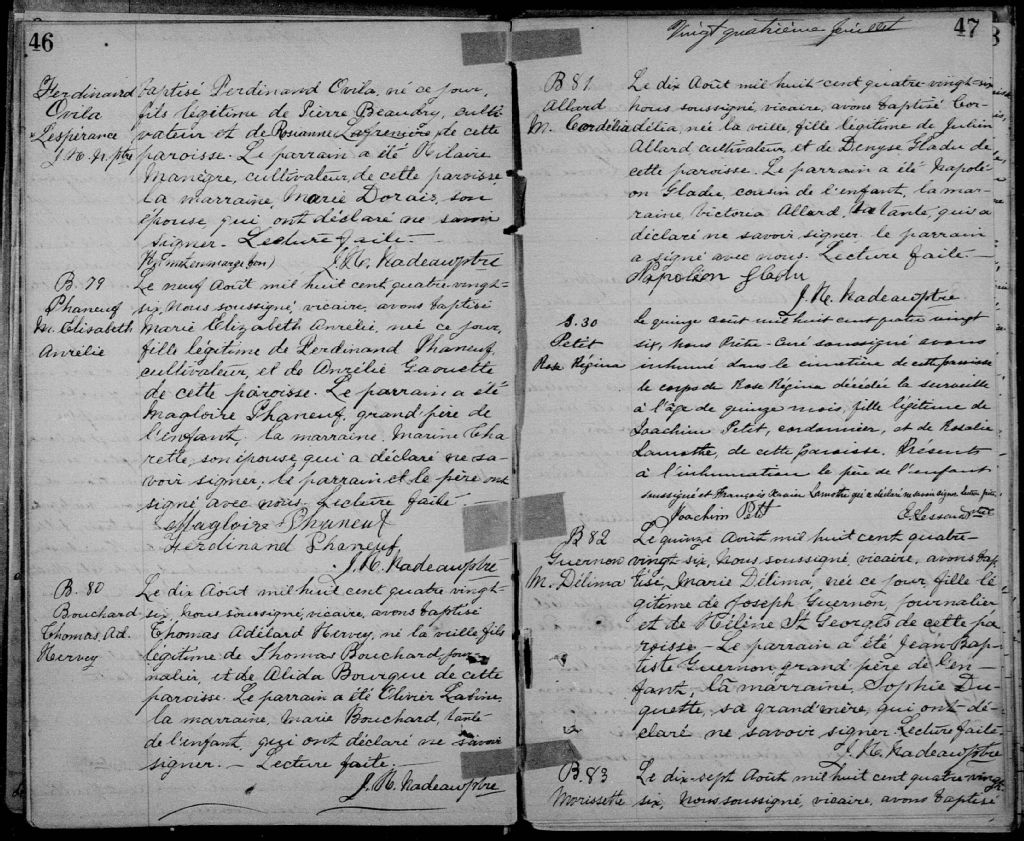 46
Ferdinand
Ovila
Lespérance
J.N. N. ptre
baptisé Ferdinand Ovila, né ce jour,
fils légitime de Pierre Beaudry, culti-
vateur et de Rosianne Lafrenière, de cette
paroisse. Le parrain a été Hilaire
Manègre, cultivateur, de cette paroisse
la marraine, Marie Dorais, son
épouse, qui ont déclaré ne savoir
signer. Lecture faite.
J. N. Nadeau ptre
B. 79
Phaneuf
M. Elisabeth
Anrélie
Le neuf Août mil huit cent quatre vingt-
six, Nous soussigné, vicaire, avons baptisé
Marie Elizabeth Anrélie, née ce jour,
fille légitime de Ferdinand Phaneuf,
cultivateur, et de Anrélie Gaouette
de cette paroisse. Le parrain a été
Magloire Phaneuf, grand père de
l'enfant, la marraine, Marine Cha
rette, son épouse qui a déclaré ne sa-
voir signer; le parrain et le père ont
signé avec nous. Lecture faite.
Magloire Phaneuf
Ferdinand Phaneuf
J. N. Nadeau ptre
B. 80
Bouchard
Thomas, Ad.
Hervey
Le dix Août mil huit cent quatre vingt-
six, nous soussigné, vicaire, avons baptisé
Thomas Adélard Hervey, né la veille fils
légitime de Thomas Bouchard jour-
nalier, et de Alida Bourque de cette
paroisse. Le parrain a été Olivier
la marraine, Marie Bouchard, tante
de l'enfant, qui ont déclaré ne savoir
signer. – Lecture faite. –
J. N. Nadeau ptre
Vingt quatrième feuillet
47
B 81
Allard
M. Cordélia
Le dix Août mil huit cent quatre vingt-six
nous soussigné, vicaire, avons baptisé Cor-
délia, née la veille, fille légitime de Julien
Allard cultivateur, et de Denyse Gladu de
cette paroisse. Le parrain a été Napolé-
on Gladu, cousin de l'enfant, la mar-
raine, Victoria Allard, sa tante, qui a
déclaré ne savoir signer. le parrain
a signé avec nous. Lecture faite. –
Napoléon Gladu
J. N. Nadeau ptre
S. 30
Petit
Rose Régina
Le quinze août mil huit cent quatre vingt
six, Nous Prêtre-Curé soussigné avons
inhumé dans le cimetière de cette paroisse
le corps de Rose Régina décédée la surveille
à l'âge de quinze mois, fille légitime de
Joachim Petit, cordonnier, et de Rosalie
Lamothe, de cette paroisse. Présents
à l'inhumation le père de l'enfant
soussigné et François Xavier Lamothe qui a déclaré ne savoir signer. Lecture faite.
Joachim Petit
Lessard
B 82
Guernon
M. Délima
Le quinze Août mil huit cent quatre-
vingt six, Nous soussigné, vicaire, avons bap
tisé Marie Délima, née ce jour fille lé
gitime de Joseph Guernon, journalier
et de Héline St Georges de cette pa
roisse – Le parrain a été Jean-Bap-
tiste Guernon grand père de l'en-
fant, la marraine, Sophie Du-
quette, sa grand'mère, qui ont dé-
claré ne savoir signer. Lecture faite.
J. N. Nadeau ptre
B. 83
Morissette
Le dix-sept Août mil huit cent quatre-vingt
six, Nous soussigné, vicaire, avons baptisé